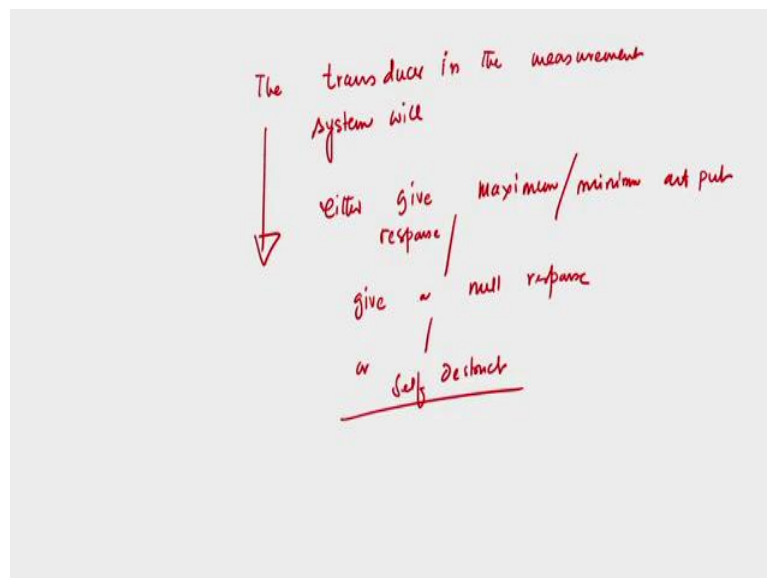 The transducer in the measurement
system will
either give maximum/minimum output
response/
give a null response
/
or Self Destruct